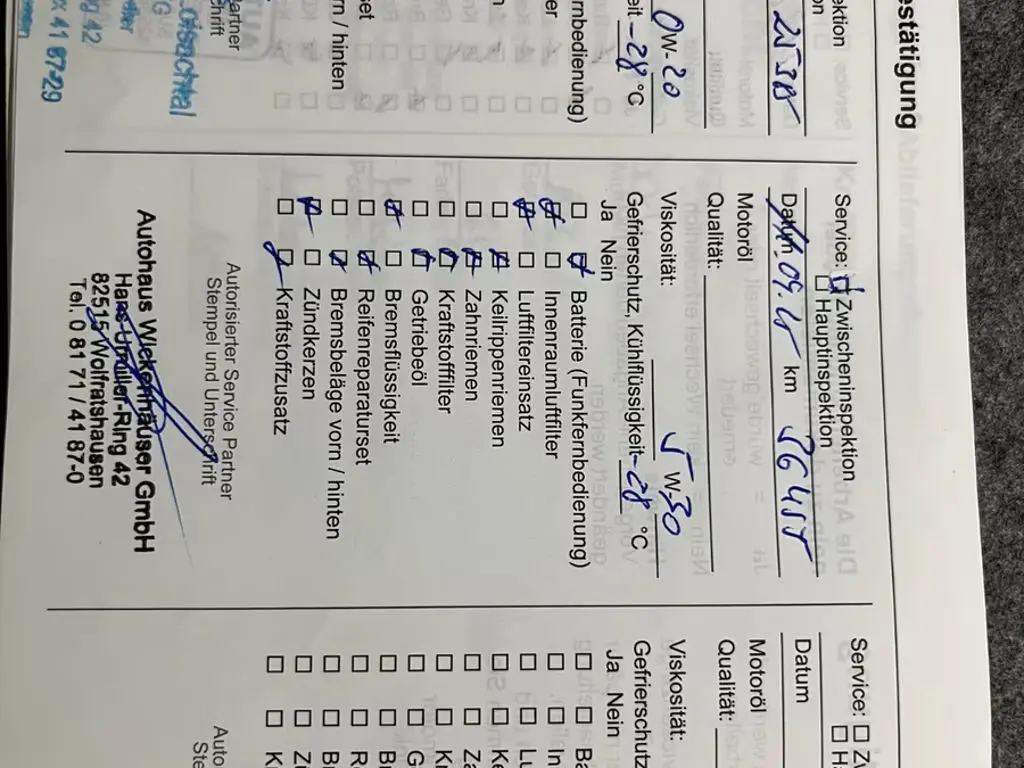 estätigung
ektion
on
0W-20
eit -28 °C
rnbedienung)
ter
n
set
rn / hinten
Partner
hrift
Loisachtal
g 42
x 41 87-29
Service: Zwischeninspektion
Hauptinspektion
Datum km
Motoröl
Qualität:
Viskosität: 5W-30
Gefrierschutz, Kühlflüssigkeit -28 °C
Ja Nein
Batterie (Funkfernbedienung)
Innenraumluftfilter
Luftfiltereinsatz
Keilrippenriemen
Zahnriemen
Kraftstofffilter
Getriebeöl
Bremsflüssigkeit
Reifenreparaturset
Bremsbeläge vorn / hinten
Zündkerzen
Kraftstoffzusatz
Autorisierter Service Partner
Stempel und Unterschrift
Autohaus Wickenhäuser GmbH
Hans-Urmiller-Ring 42
82515 Wolfratshausen
Tel. 0 81 71 / 41 87-0
Service: Zw
Ha
Datum
Motoröl
Qualität:
Viskosität:
Gefrierschutz
Ja Nein
Ba
In
Lu
Ke
Za
Kr
G
Br
Re
Br
Zü
Kr
Auto
Ste